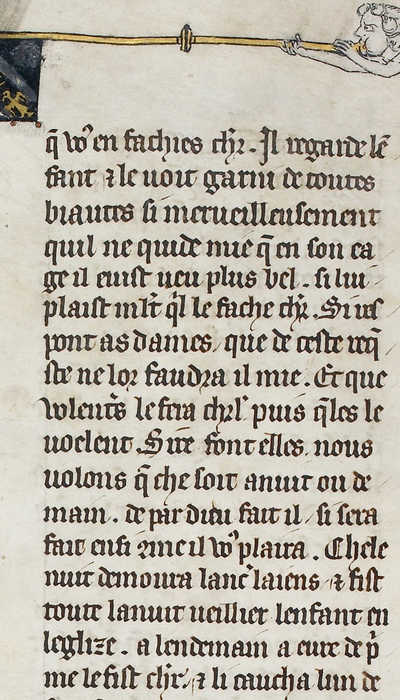 q̃ voꝰ en fachies chr̄. Il regarde lẽ
fant ⁊ le uoit garni de toutes
biautes si merueilleusement
quil ne quide mie q̃ en son ea
ge il euist ueu plus bel . si lui
plaist ml̃t q̃l le fache chr̄. Si res
pont as dames, que de ceste req̃
ste ne lor faudra il mie. Et que
volent̃s le fera chr̃l puis q̃les le
uoelent. Sire font elles nous
uolons q̃ che soit anuit ou de
main. de par dieu fait il / si sera
fait ensi 9me il voꝰ plaira. Chele
nuit demoura lanc̃ laiens / ⁊ fist
toute lanuit ueillier lenfant en
leglize. a lendemain a eure de p̃
me le fist chr̄. ⁊ li caucha lun de